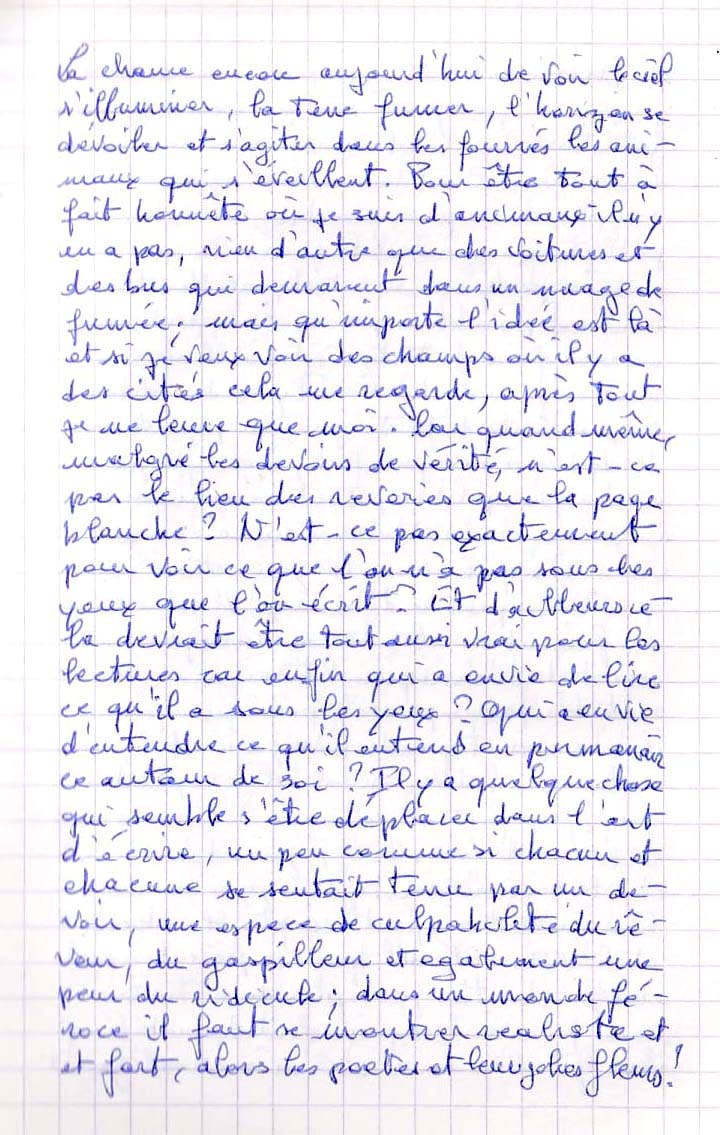 La chance encore aujourd'hui de voir le ciel
s'illuminer, la terre fumer, l'horizon se
dévoiler et s'agiter dans les fourrés les ani-
maux qui s'éveillent. Pour être tout à
fait honnête où je suis d'animaux il n'y
en a pas, rien d'autre que des voitures et
des bus qui démarrent dans un nuage de
fumée; mais qu'importe l'idée est là
et si je veux voir des champs où il y a
des cités cela me regarde, après tout
je ne leurre que moi. Car quand même,
malgré les devoirs de vérité, n'est-ce
pas le lieu des reveries que la page
blanche? N'est-ce pas exactement
pour voir ce que l'on n'a pas sous les
yeux que l'on écrit? Et d'ailleurs ce
la devrait être tout aussi vrai pour les
lectures car enfin qui a envie de lire
ce qu'il a sous les yeux? Qui a envie
d'entendre ce qu'il entend en permanen
ce autour de soi? Il y a quelque chose
qui semble s'être déplacé dans l'art
d'écrire, un peu comme si chacun et
chacune se sentait tenu par un de-
voir, une espece de culpabilité du rê-
veur, du gaspilleur et egalement une
peur du ridicule; dans un monde fé-
roce il faut se montrer realiste et
et fort, alors les poetes et leurs jolies fleurs!